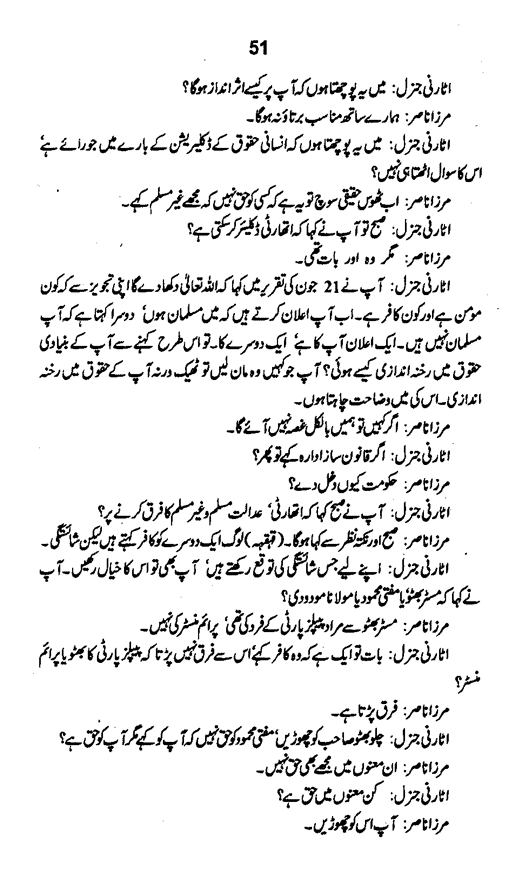 51
اٹارنی جنرل: میں یہ پوچھتا ہوں کہ آپ پر کیسے اثر انداز ہوگا؟
مرزا ناصر: ہمارے ساتھ مناسب برتاؤ نہ ہوگا۔
اٹارنی جنرل: میں یہ پوچھتا ہوں کہ انسانی حقوق کے ڈکلیریشن کے بارے میں جو رائے ہے'
اس کا سوال اٹھتا ہی نہیں؟
مرزا ناصر: اب ٹھوس حقیقی سوچ تو یہ ہے کہ کسی کو حق نہیں کہ مجھے غیر مسلم کہے۔
اٹارنی جنرل: صبح تو آپ نے کہا کہ اتھارٹی ڈکلیئر کر سکتی ہے؟
مرزا ناصر: مگر وہ اور بات تھی۔
اٹارنی جنرل: آپ نے 21 جون کی تقریر میں کہا کہ اللہ تعالیٰ دکھا دے گا اپنی تجویز سے کہ کون
مؤمن ہے اور کون کافر ہے۔ اب آپ اعلان کرتے ہیں کہ میں مسلمان ہوں' دوسرا کہتا ہے کہ آپ
مسلمان نہیں ہیں۔ ایک اعلان آپ کا ہے' ایک دوسرے کا۔ تو اس طرح کہنے سے آپ کے بنیادی
حقوق میں رخنہ اندازی کیسے ہوئی؟ آپ جو کہیں وہ مان لیں تو ٹھیک ورنہ آپ کے حقوق میں رخنہ
اندازی۔ اس کی میں وضاحت چاہتا ہوں۔
مرزا ناصر: اگر کہیں تو ہمیں بالکل غصہ نہیں آئے گا۔
اٹارنی جنرل: اگر قانون ساز ادارہ کہے تو پھر؟
مرزا ناصر: حکومت کیوں دخل دے؟
اٹارنی جنرل: آپ نے صبح کہا کہ اتھارٹی' عدالت مسلم و غیر مسلم کا فرق کرنے پر؟
مرزا ناصر: صبح اور نکتہ نظر سے کہا ہوگا۔ (قہقہہ) لوگ ایک دوسرے کو کافر کہتے ہیں لیکن شائستگی۔
اٹارنی جنرل: اپنے لیے جس شائستگی کی توقع رکھتے ہیں' آپ بھی تو اس کا خیال رکھیں۔ آپ
نے کہا کہ مسٹر بھٹو یا مفتی محمود یا مولانا مودودی؟
مرزا ناصر: مسٹر بھٹو سے مراد پیپلز پارٹی کے فرد کی تھی' پرائم منسٹر کی نہیں۔
اٹارنی جنرل: بات تو ایک ہے کہ وہ کافر کہے' اس سے فرق نہیں پڑتا کہ پیپلز پارٹی کا بھٹو یا پرائم
منسٹر؟
مرزا ناصر: فرق پڑتا ہے۔
اٹارنی جنرل: چلو بھٹو صاحب کو چھوڑیں' مفتی محمود کو حق نہیں کہ آپ کو کہے مگر آپ کو حق ہے؟
مرزا ناصر: ان معنوں میں مجھے بھی حق نہیں۔
اٹارنی جنرل: کن معنوں میں حق ہے؟
مرزا ناصر: آپ اس کو چھوڑیں۔